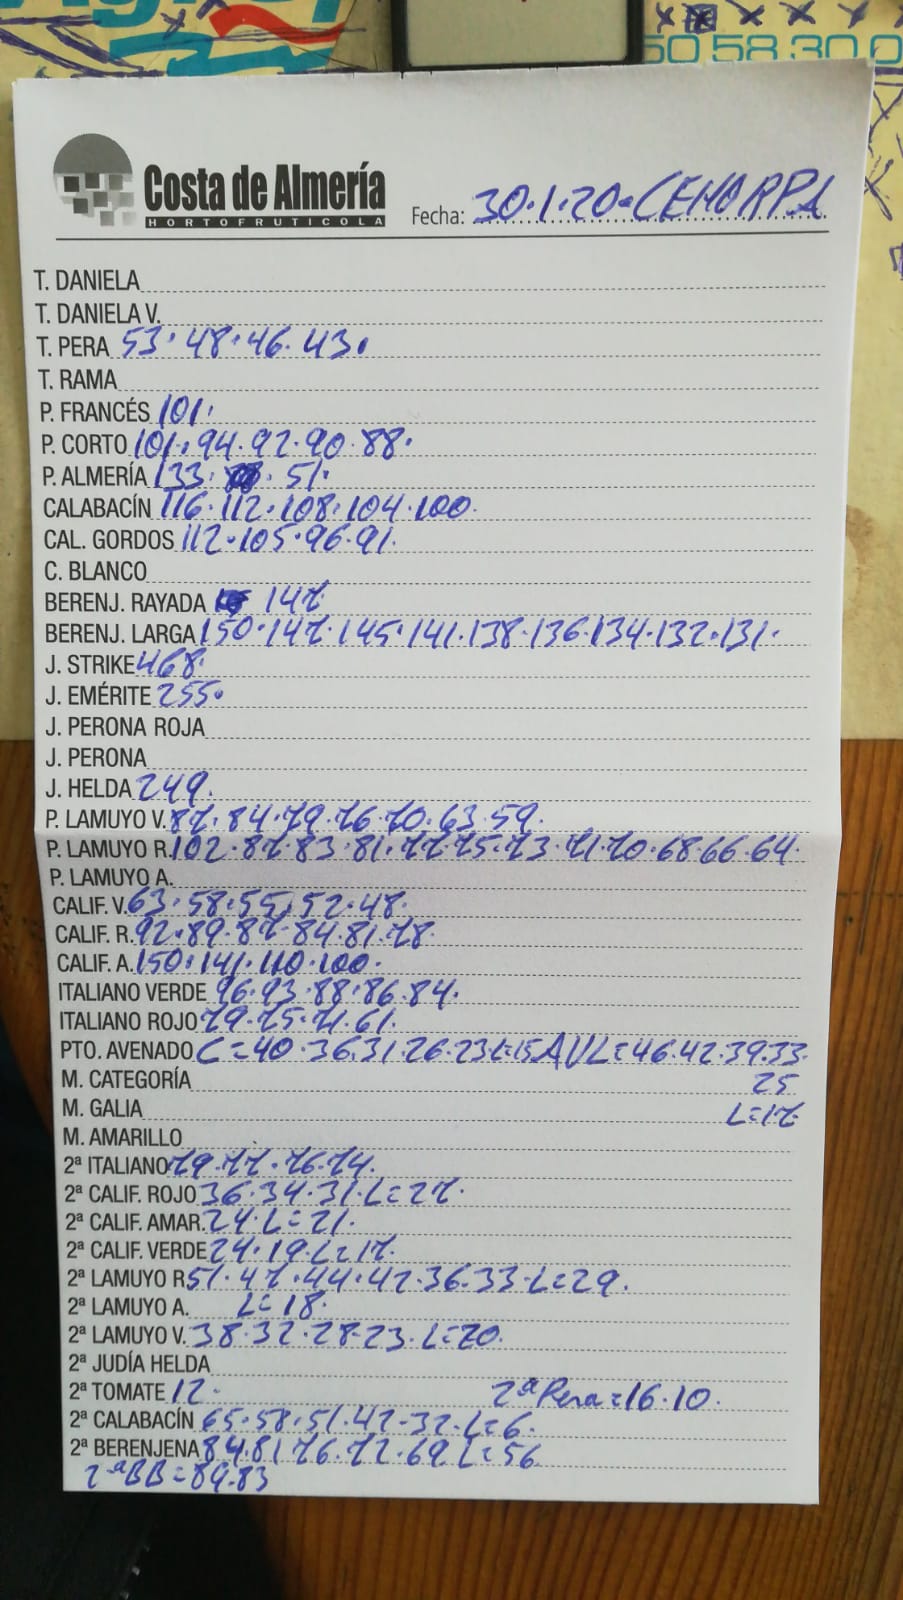 50 58 30 0
Costa de Almería
HORTOFRUTICOLA
Fecha: 30.1.20=CEHORPA
T. DANIELA
T. DANIELA V.
T. PERA 53.48.46.43.
T. RAMA
P. FRANCÉS 101.
P. CORTO 101.94.92.90.88.
P. ALMERÍA 133. 51.
CALABACÍN 116.112.108.104.100.
CAL. GORDOS 112.105.96.91.
C. BLANCO
BERENJ. RAYADA 147
BERENJ. LARGA 150.147.145.141.138.136.134.132.131.
J. STRIKE 468.
J. EMÉRITE 255.
J. PERONA ROJA
J. PERONA
J. HELDA 249.
P. LAMUYO V. 87.84.79.76.70.63.59.
P. LAMUYO R. 102.87.83.81.77.75.73.71.70.68.66.64.
P. LAMUYO A.
CALIF. V. 63.58.55.52.48.
CALIF. R. 92.89.87.84.81.78.
CALIF. A. 150.141.110.100.
ITALIANO VERDE 96.93.88.86.84.
ITALIANO ROJO 79.75.71.61.
PTO. AVENADO C=40.36.31.26.23.L=15 AVL=46.42.39.33.
M. CATEGORÍA 25
M. GALIA L=17
M. AMARILLO
2ª ITALIANO 79.77.76.74.
2ª CALIF. ROJO 36.34.31.L=27.
2ª CALIF. AMAR. 24.L=21.
2ª CALIF. VERDE 24.19.L=17.
2ª LAMUYO R 51.47.44.42.36.33.L=29.
2ª LAMUYO A. L=18.
2ª LAMUYO V. 38.32.28.23.L=20.
2ª JUDÍA HELDA
2ª TOMATE 12. 2ªPera=16.10.
2ª CALABACÍN 65.58.51.42.32.L=6.
2ª BERENJENA 84.81.76.72.69.L=56
2ªBB=89.83